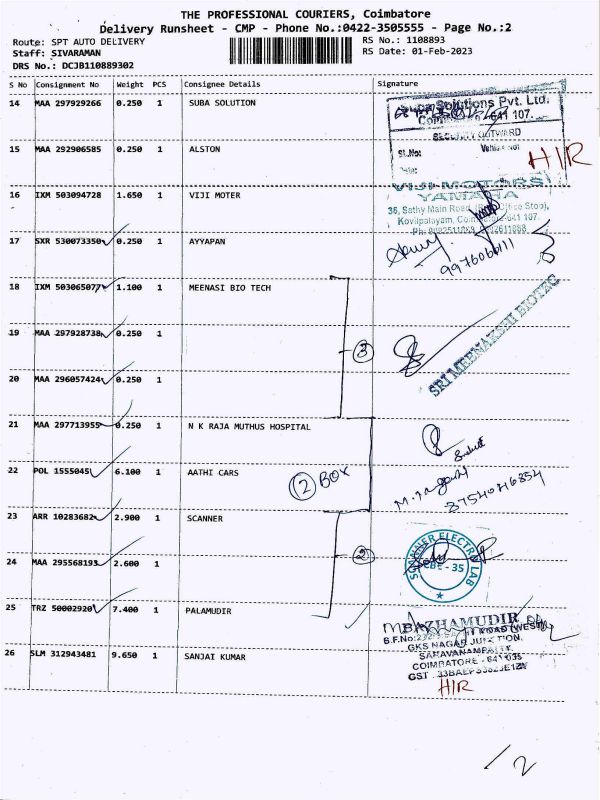 THE PROFESSIONAL COURIERS, Coimbatore
Delivery Runsheet - CMP - Phone No.:0422-3505555 - Page No.:2
Route: SPT AUTO DELIVERY RS No.: 1108893
Staff: SIVARAMAN RS Date: 01-Feb-2023
DRS No.: DCJB110889302
S No Consignment No Weight PCS Consignee Details Signature
14 MAA 297929266 0.250 1 SUBA SOLUTION
Solutions Pvt. Ltd.
641 107.
SECURITY OUTWARD
15 MAA 292906585 0.250 1 ALSTON
Sl.No: Vehicle No:
Date:
H/R
16 IXM 503094728 1.650 1 VIJI MOTER
VIJI MOTORS
YAMAHA
36, Sathy Main Road, Stop),
Kovilpalayam, Coimbatore-641 107.
17 SXR 530073350 0.250 1 AYYAPAN
9976066111
18 IXM 503065077 1.100 1 MEENASI BIO TECH
SRI MEENAKSHI BIOTEC
19 MAA 297928738 0.250 1
3
20 MAA 296057424 0.250 1
21 MAA 297713955 0.250 1 N K RAJA MUTHUS HOSPITAL
22 POL 1555045 6.100 1 AATHI CARS
2 BOX
8754046854
23 ARR 10283682 2.900 1 SCANNER
SCANNER ELECTRO LAB
CBE - 35
24 MAA 295568193 2.600 1
2
25 TRZ 50002920 7.400 1 PALAMUDIR
PAZHAMUDIR
S.F.No: ROAD (WEST)
GKS NAGAR JUNCTION,
SARAVANAMPATTY,
COIMBATORE - 641 035
26 SLM 312943481 9.650 1 SANJAI KUMAR
H/R
/2